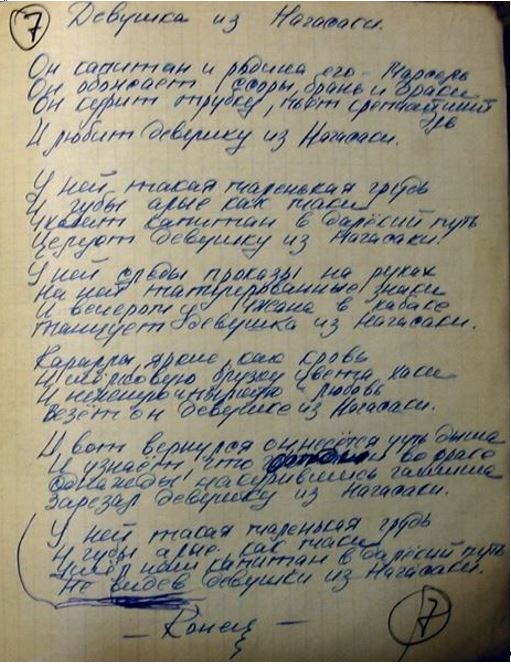 7
Девушка из Нагасаки.
Он капитан и родина его - Марсель
Он обожает ссоры, брань и драки
Он курит трубку, пьёт крепчайший
эль
И любит девушку из Нагасаки.
У ней такая маленькая грудь
И губы алые как маки
Уходит капитан в далёкий путь
Целует девушку из Нагасаки.
У ней следы проказы на руках
На ней татуированные знаки
И вечером у Жана в кабаке
танцует девушка из Нагасаки.
Караллы яркие, как кровь
И шёлковую блузку цвета хаки
И
любовь
Везёт он девушке из Нагасаки.
И вот вернулся он несётся чуть дыша
И узнаёт, что
во фраке
Однажды накурившись гашиша
Зарезал девушку из Нагасаки.
У ней такая маленькая грудь
И губы алые как маки
Ушёл наш капитан в далёкий путь
Не видев девушки из Нагасаки.
- Конец -
7